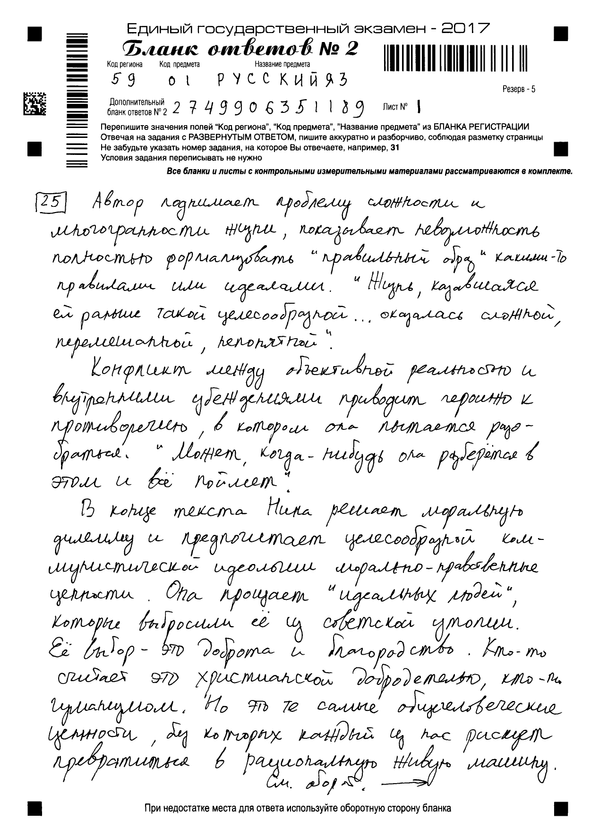 Единый государственный экзамен - 2017
Бланк ответов № 2
Код региона Код предмета Название предмета
59 01 РУССКИЙ ЯЗ
Резерв - 5
Дополнительный
бланк ответов № 2 2749906351189 Лист № 1
Перепишите значения полей "Код региона", "Код предмета", "Название предмета" из БЛАНКА РЕГИСТРАЦИИ
Отвечая на задания с РАЗВЕРНУТЫМ ОТВЕТОМ, пишите аккуратно и разборчиво, соблюдая разметку страницы
Не забудьте указать номер задания, на которое Вы отвечаете, например, 31
Условия задания переписывать не нужно
Все бланки и листы с контрольными измерительными материалами рассматриваются в комплекте.
25 Автор поднимает проблему сложности и
многогранности жизни, показывает невозможность
полностью формализовать "правильный образ" какими-то
правилами или идеалами. "Жизнь, казавшаяся
ей раньше такой целесообразной... оказалась сложной,
перемешанной, непонятной".
Конфликт между объективной реальностью и
внутренними убеждениями приводит героиню к
противоречию, в котором она пытается разо-
браться. "Может, когда-нибудь она разберётся в
этом и всё поймет".
В конце текста Нина решает моральную
дилемму и предпочитает целесообразной ком-
мунистической идеологии морально-нравственные
ценности. Она прощает "идеальных людей",
которые выбросили её из советской утопии.
Её выбор - это доброта и благородство. Кто-то
считает это христианской добродетелью, кто-то
гуманизмом. Но это те самые общечеловеческие
ценности, без которых каждый из нас рискует
превратиться в рациональную живую машину.
См. оборот. →
При недостатке места для ответа используйте оборотную сторону бланка